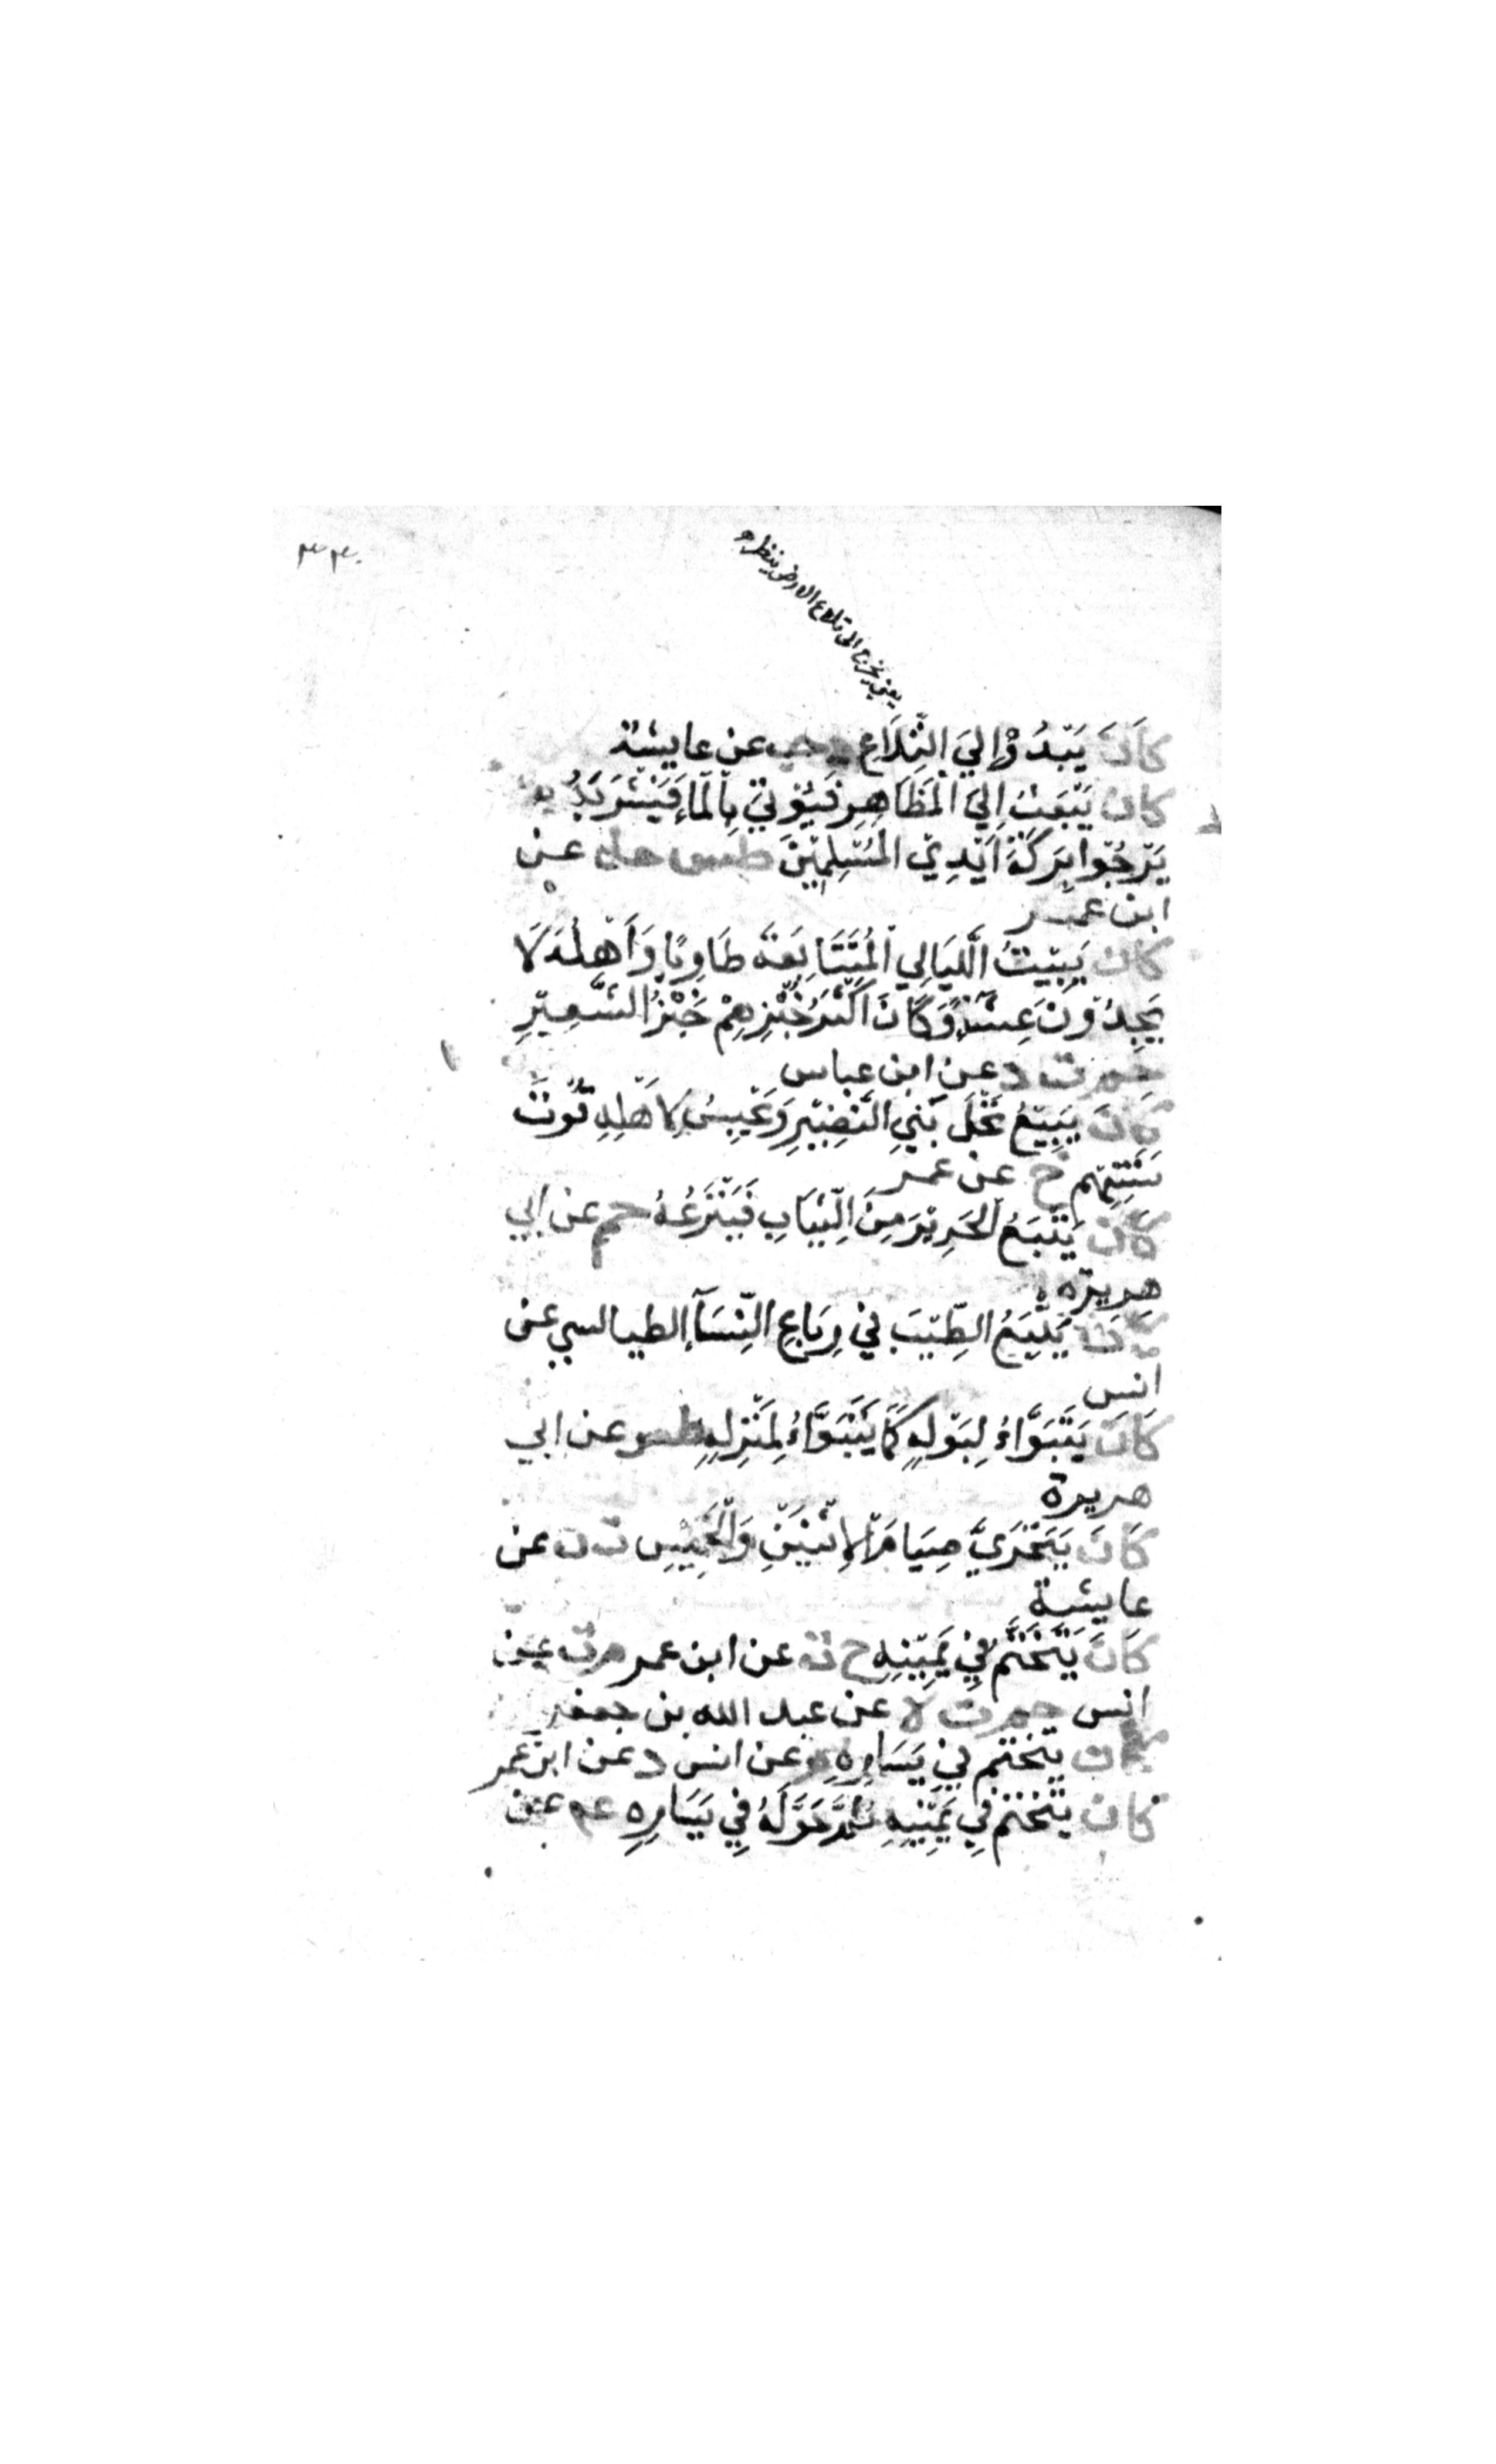 يعني يخرج الى تلاع الارض ينظر
كَانَ يَبْدُوْا إِليَ التِّلَاعِ د حب عن عايشة
كان يَبْعَثُ اِليَ الْمَظَاهِرِ فَيُؤْتِيَ بِالْمَاءِ فَيَشْرَبُهُ
يَرْجُوْا بَرَكَةَ اَيْدِيْ الْمُسْلِمِيْنَ طس حل عن
ابن عمر
كان يَبِيْتُ الْلَيَالِي الْمُتَتَابِعَةَ طَاوِيًا وَاَهْلُهُ لَا
يَجِدُوْنَ عِشَاءً وَكَانَ اَكْثَرُ خُبْزِهِمْ خُبْزُ الشَّعِيْرِ
حم ت د عن ابن عباس
كَانَ يَبِيْعُ نَخْلَ بَنِي النَّضِيْرِ وَيَحْبِسُ لِاَهْلِهِ قُوْتَ
سَنَتِهِمْ خ عن عمر
كَانَ يَتْبَعُ الْحَرِيْرَ مِنَ الثِّيَابِ فَيَنْزِعُهُ حم عن ابي
هريرة
كان يَتْبَعُ الطِّيْبَ فِيْ رِبَاعِ النِّسَآءِ الطيالسي عن
انس
كَانَ يَتَبَوَّاءُ لِبَوْلِهِ كَمَا يَتَبَوَّاءُ لِمَنْزِلِهِ طس عن ابي
هريرة
كَانَ يَتَحَرَّيَ صِيَامَ الْاِثْنَيْنِ وَالْخَمِيْسِ ت ن عن
عايشة
كَانَ يَتَخَتَّمُ فِيْ يَمِيْنِهِ خ ت عن ابن عمر م ن عن
انس حم ت لا عن عبد الله بن جعفر
كان يتختم في يَسَارِهِ م عن انس د عن ابن عمر
كان يتختم فِي يَمِيْنِهِ ثُمَّ حَوَّلَهُ فِي يَسَارِهِ عد عن